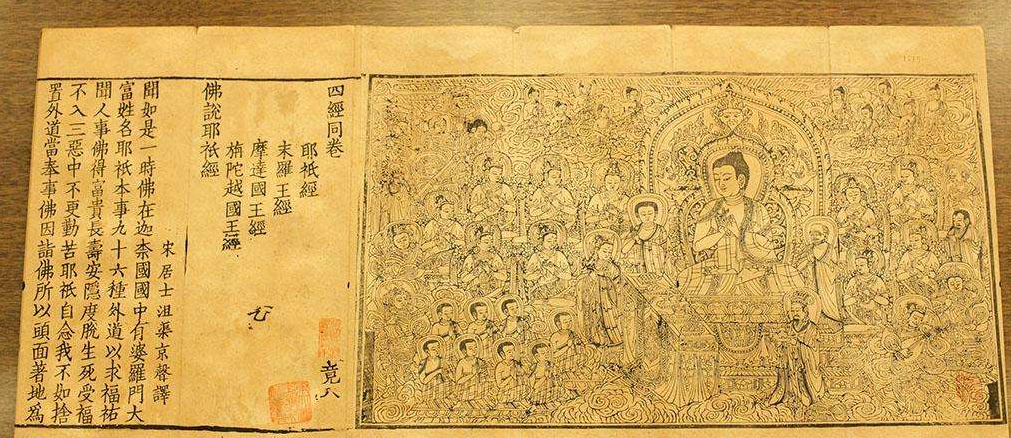 四經同卷
竟八
耶祇經
末羅王經
摩達國王經
旃陀越國王經
佛說耶祇經
宋居士沮渠京聲譯
聞如是一時佛在迦柰國國中有婆羅門大
富姓名耶祇本事九十六種外道以求福祐
聞人事佛得富貴長壽安隱度脫生死受福
不入三惡中不更勤苦耶祇自念我不如捨
置外道當奉事佛因詣佛所以頭面著地為